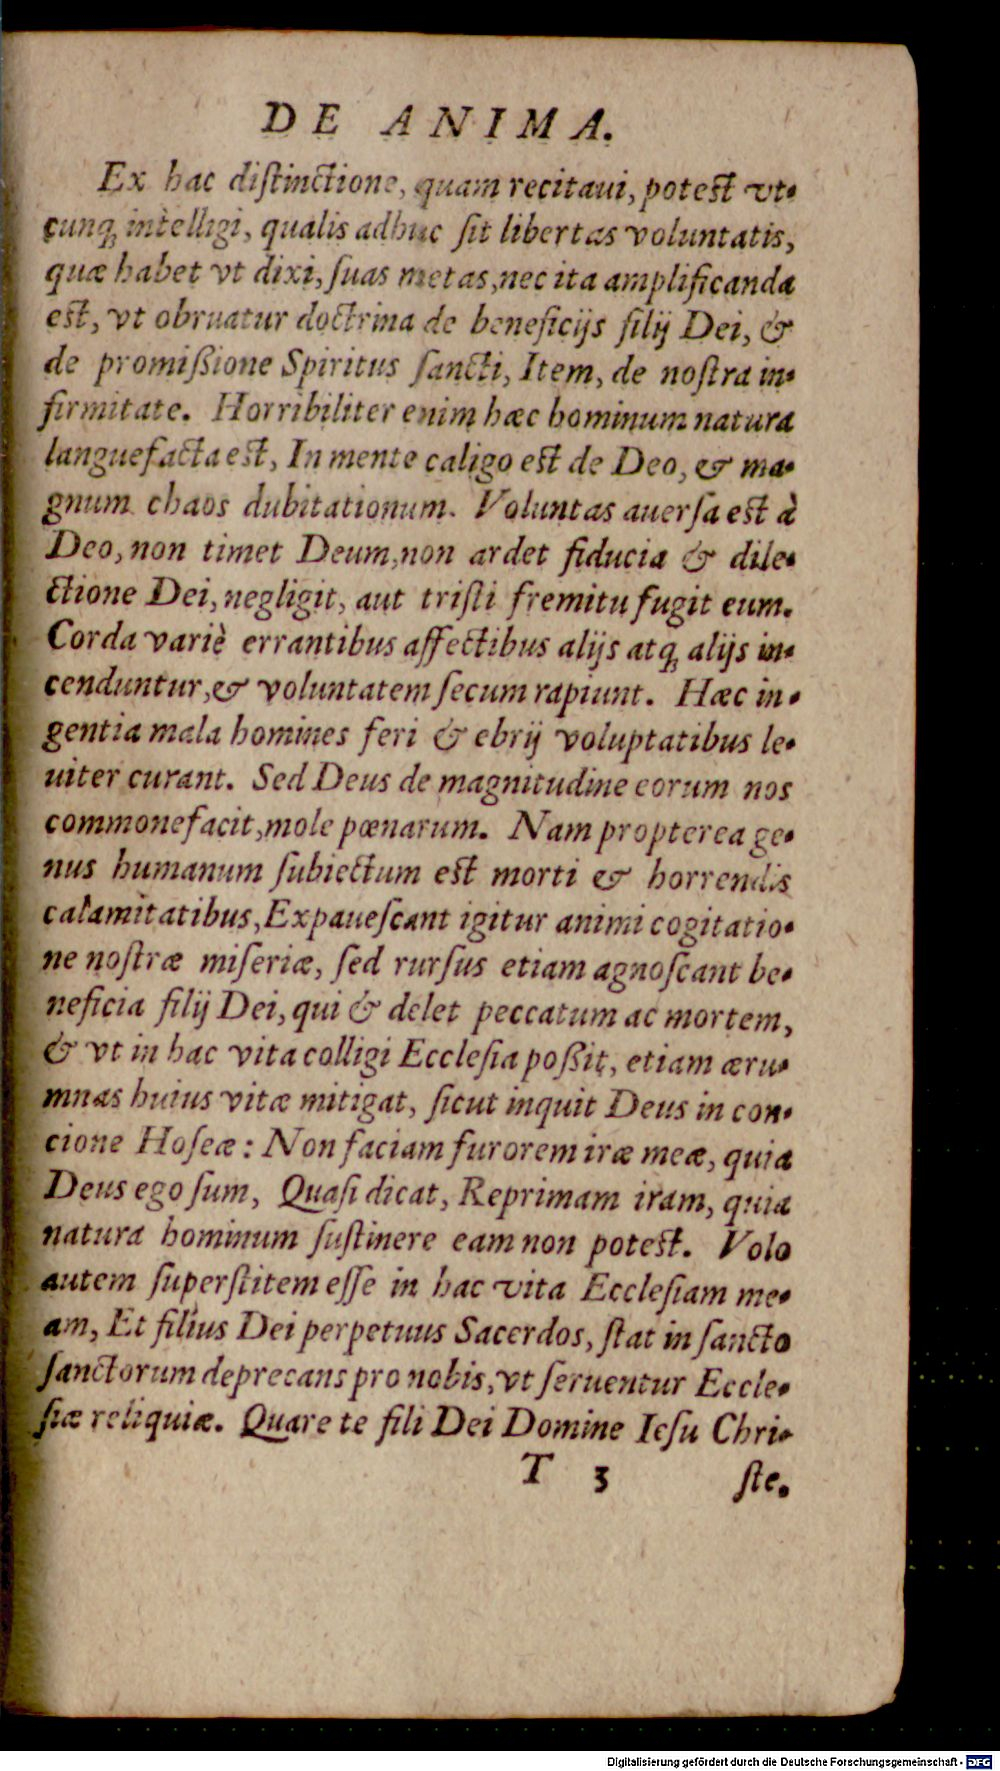 DE ANIMA.
Ex hac distinctione, quam recitaui, potest vt-
cunq́ꝫ intelligi, qualis adhuc sit libertas voluntatis,
quæ habet vt dixi, suas metas, nec ita amplificanda
est, vt obruatur doctrina de beneficijs filij Dei, &
de promißione Spiritus sancti, Item, de nostra in-
firmitate. Horribiliter enim hæc hominum natura
languefacta est, In mente caligo est de Deo, & ma-
gnum chaos dubitationum. Voluntas auersa est à
Deo, non timet Deum, non ardet fiducia & dile-
ctione Dei, negligit, aut tristi fremitu fugit eum.
Corda variè errantibus affectibus alijs atqꝫ alijs in-
cenduntur, & voluntatem secum rapiunt. Hæc in-
gentia mala homines feri & ebrij voluptatibus le-
uiter curant. Sed Deus de magnitudine eorum nos
commonefacit, mole pœnarum. Nam propterea ge-
nus humanum subiectum est morti & horrendis
calamitatibus, Expauescant igitur animi cogitatio-
ne nostræ miseriæ, sed rursus etiam agnoscant be-
neficia filij Dei, qui & delet peccatum ac mortem,
& vt in hac vita colligi Ecclesia poßit, etiam æru-
mnas huius vitæ mitigat, sicut inquit Deus in con-
cione Hoseæ: Non faciam furorem iræ meæ, quia
Deus ego sum, Quasi dicat, Reprimam iram, quia
natura hominum sustinere eam non potest. Volo
autem superstitem esse in hac vita Ecclesiam me-
am, Et filius Dei perpetuus Sacerdos, stat in sancto
sanctorum deprecans pro nobis, vt seruentur Eccle-
siæ reliquiæ. Quare te fili Dei Domine Iesu Chri-
T 3 ste.
Digitalisierung gefördert durch die Deutsche Forschungsgemeinschaft - DFG